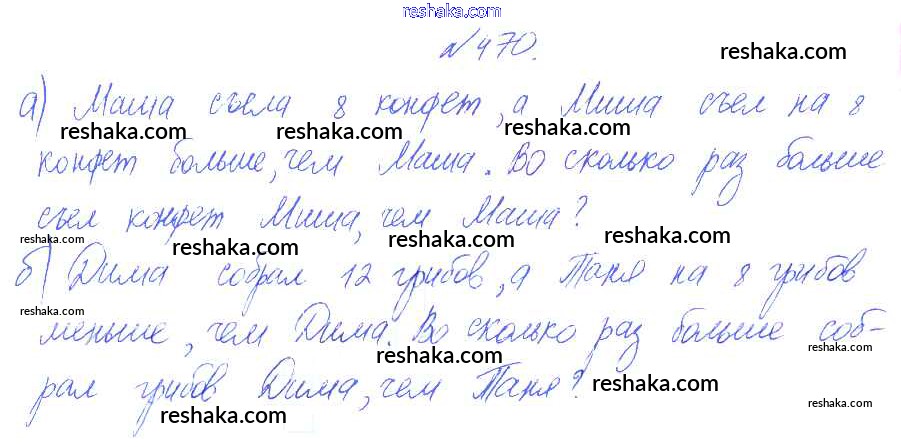 reshaka.com
№ 470.
reshaka.com
а) Маша съела 8 конфет, а Миша съел на 8
reshaka.com reshaka.com reshaka.com reshaka.com
конфет больше, чем Маша. Во сколько раз больше
съел конфет Миша, чем Маша?
reshaka.com reshaka.com reshaka.com reshaka.com
б) Дима собрал 12 грибов, а Таня на 8 грибов
reshaka.com
меньше, чем Дима. Во сколько раз больше соб-
reshaka.com reshaka.com
рал грибов Дима, чем Таня?
reshaka.com reshaka.com
reshaka.com reshaka.com